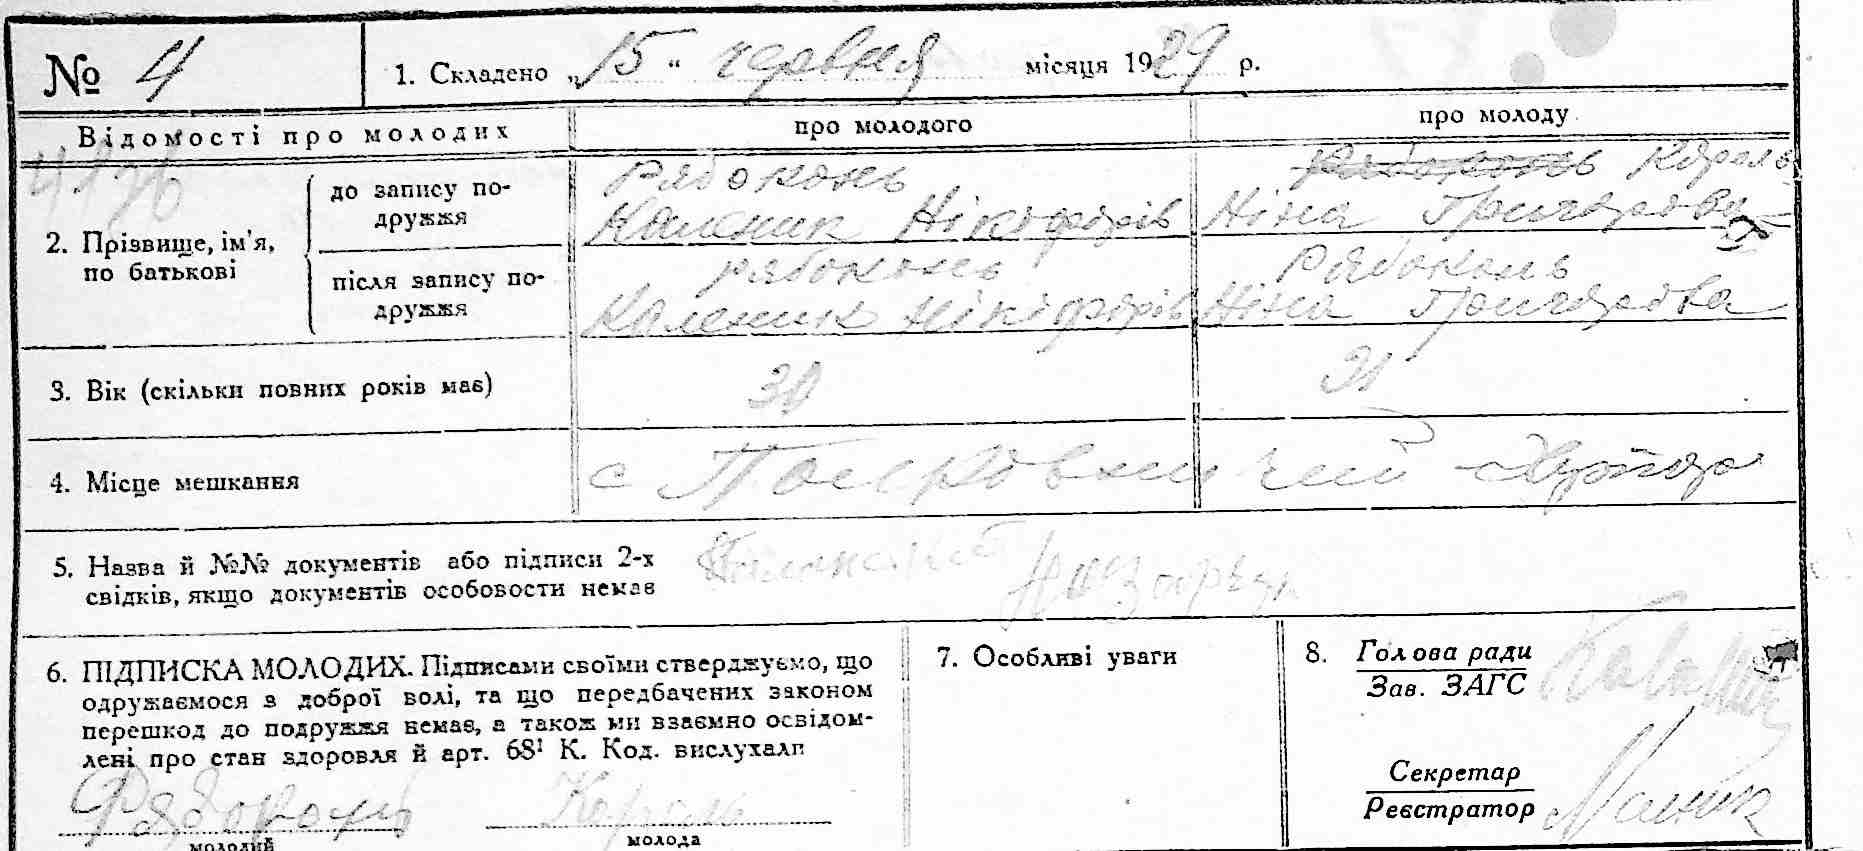 № 4
1. Складено „15“ червня місяця 1929 р.
Відомості про молодих
про молодого
про молоду
2. Прізвище, ім'я, по батькові
до запису по-
дружжя
Рябоконь
Каленик Нікіфорів
Рябоконь Король
Ніна Григорова
після запису по-
дружжя
Рябоконь
Каленик Нікіфорів
Рябоконь
Ніна Григорова
3. Вік (скільки повних років має)
30
21
4. Місце мешкання
с
5. Назва й №№ документів або підписи 2-х
свідків, якщо документів особовости немає
6. ПІДПИСКА МОЛОДИХ. Підписами своїми стверджуємо, що
одружаємося з доброї волі, та що передбачених законом
перешкод до подружжя немає, а також ми взаємно освідом-
лені про стан здоровля й арт. 68¹ К. Код. вислухали
Рябоконь
молодий
Король
молода
7. Особливі уваги
8. Голова ради
Зав. ЗАГС
Секретар
Реєстратор